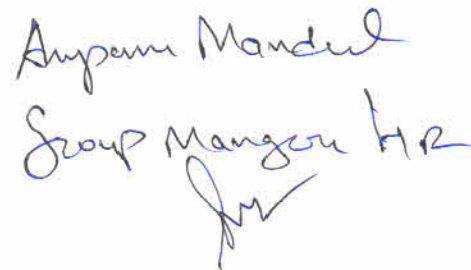 Anupam Mandal
Group Manger HR